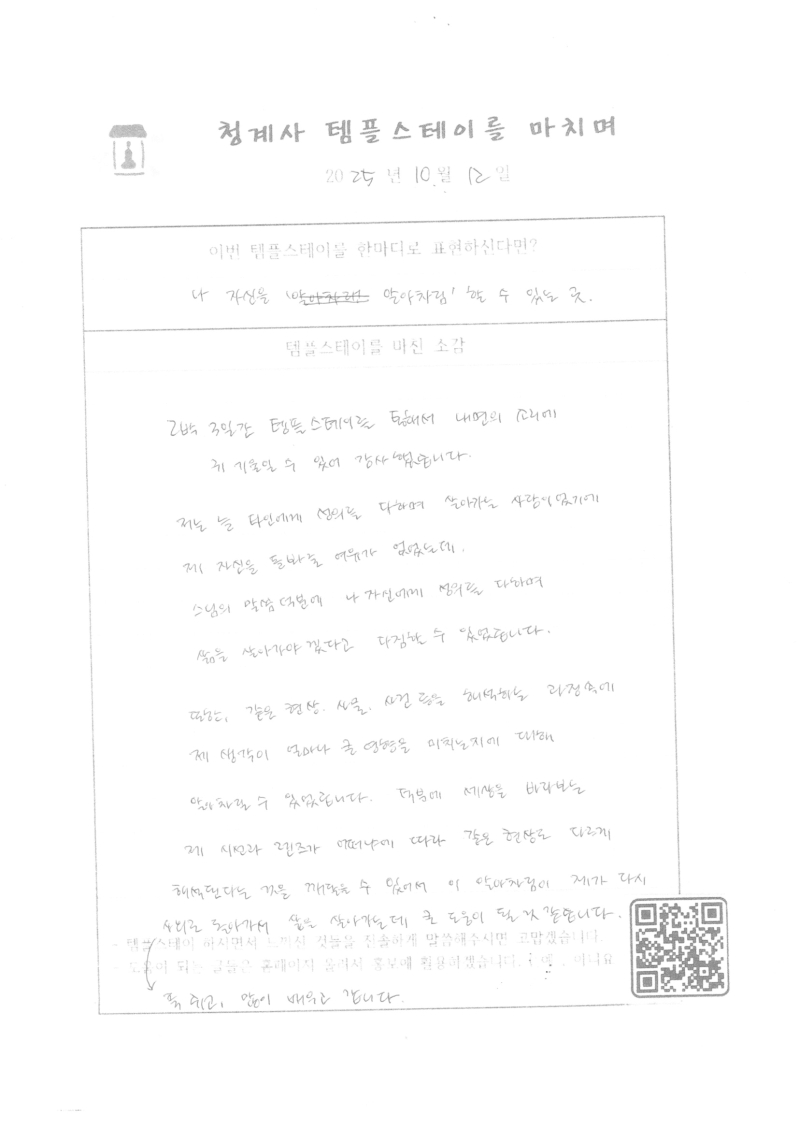 청계사 템플스테이를 마치며
2025년 10월 12일
이번 템플스테이를 한마디로 표현하신다면?
나 자신을 '알아차림' 할 수 있는 곳.
템플스테이를 마친 소감
2박 3일간 템플스테이를 통해서 내면의 소리에
귀 기울일 수 있어 감사했습니다.
저는 늘 타인에게 성의를 다하며 살아가는 사람이었기에
제 자신을 돌봐줄 여유가 없었는데,
스님의 말씀 덕분에 나 자신에게 성의를 다하며
삶을 살아가야겠다고 다짐할 수 있었습니다.
또한, 같은 현상, 사물, 사건 등을 해석하는 과정속에
제 생각이 얼마나 큰 영향을 미치는지에 대해
알아차릴 수 있었습니다. 덕분에 세상을 바라보는
제 시선과 렌즈가 어떠냐에 따라 같은 현상도 다르게
해석된다는 것을 깨달을 수 있어서 이 알아차림이 제가 다시
사회로 돌아가서 삶을 살아가는데 큰 도움이 될 것 같습니다.
- 템플스테이 하시면서 느끼신 것들을 진솔하게 말씀해주시면 고맙겠습니다.
- 도움이 되는 글들은 홈페이지 올려서 홍보에 활용하겠습니다. ( 예 , 아니요
푹 쉬고, 많이 배우고 갑니다.